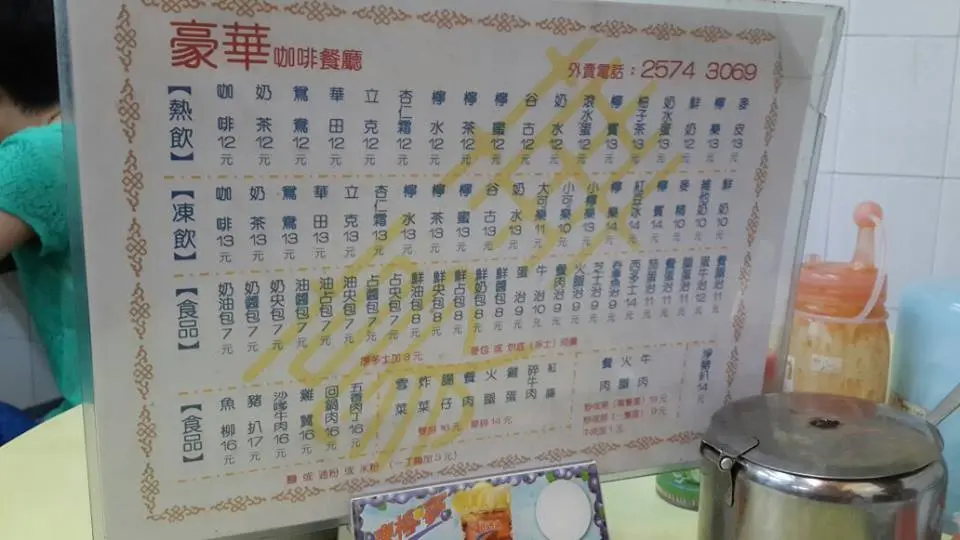 豪華咖啡餐廳
外賣電話：2574 3069
【熱飲】
咖啡12元
奶茶12元
鴛鴦12元
華田12元
立克12元
杏仁霜12元
檸水12元
檸茶12元
檸蜜12元
谷古12元
奶水12元
滾水蛋12元
檸賓13元
柚子茶13元
奶水蛋13元
鮮奶13元
檸樂13元
麥皮13元
【凍飲】
咖啡13元
奶茶13元
鴛鴦13元
華田13元
立克13元
杏仁霜13元
檸水13元
檸茶13元
檸蜜13元
谷古13元
奶水13元
大可樂11元
小可樂10元
小檸樂13元
檸樂14元
紅豆冰14元
檸賓14元
維他奶10元
鮮奶10元
【食品】
奶油包7元
奶醬包7元
奶央包7元
油醬包7元
油占包7元
油央包7元
占醬包7元
占央包7元
鮮油包8元
鮮央包8元
鮮占包8元
鮮奶包8元
鮮醬包8元
蛋治9元
牛治10元
餐肉治9元
火腿治9元
芝士治9元
西多士14元
餐蛋治11元
腿蛋治11元
蛋牛治12元
厚多士加3元
【食品】
魚柳16元
豬扒17元
沙嗲牛肉16元
雞翼16元
回鍋肉16元
五香肉丁16元
雪菜
炸菜
餐肉
火腿
雞蛋
碎牛肉
紅腸
餐肉
火腿
牛肉
淨豬扒14元
麵 或 通粉 或 米粉 （一丁麵加3元）